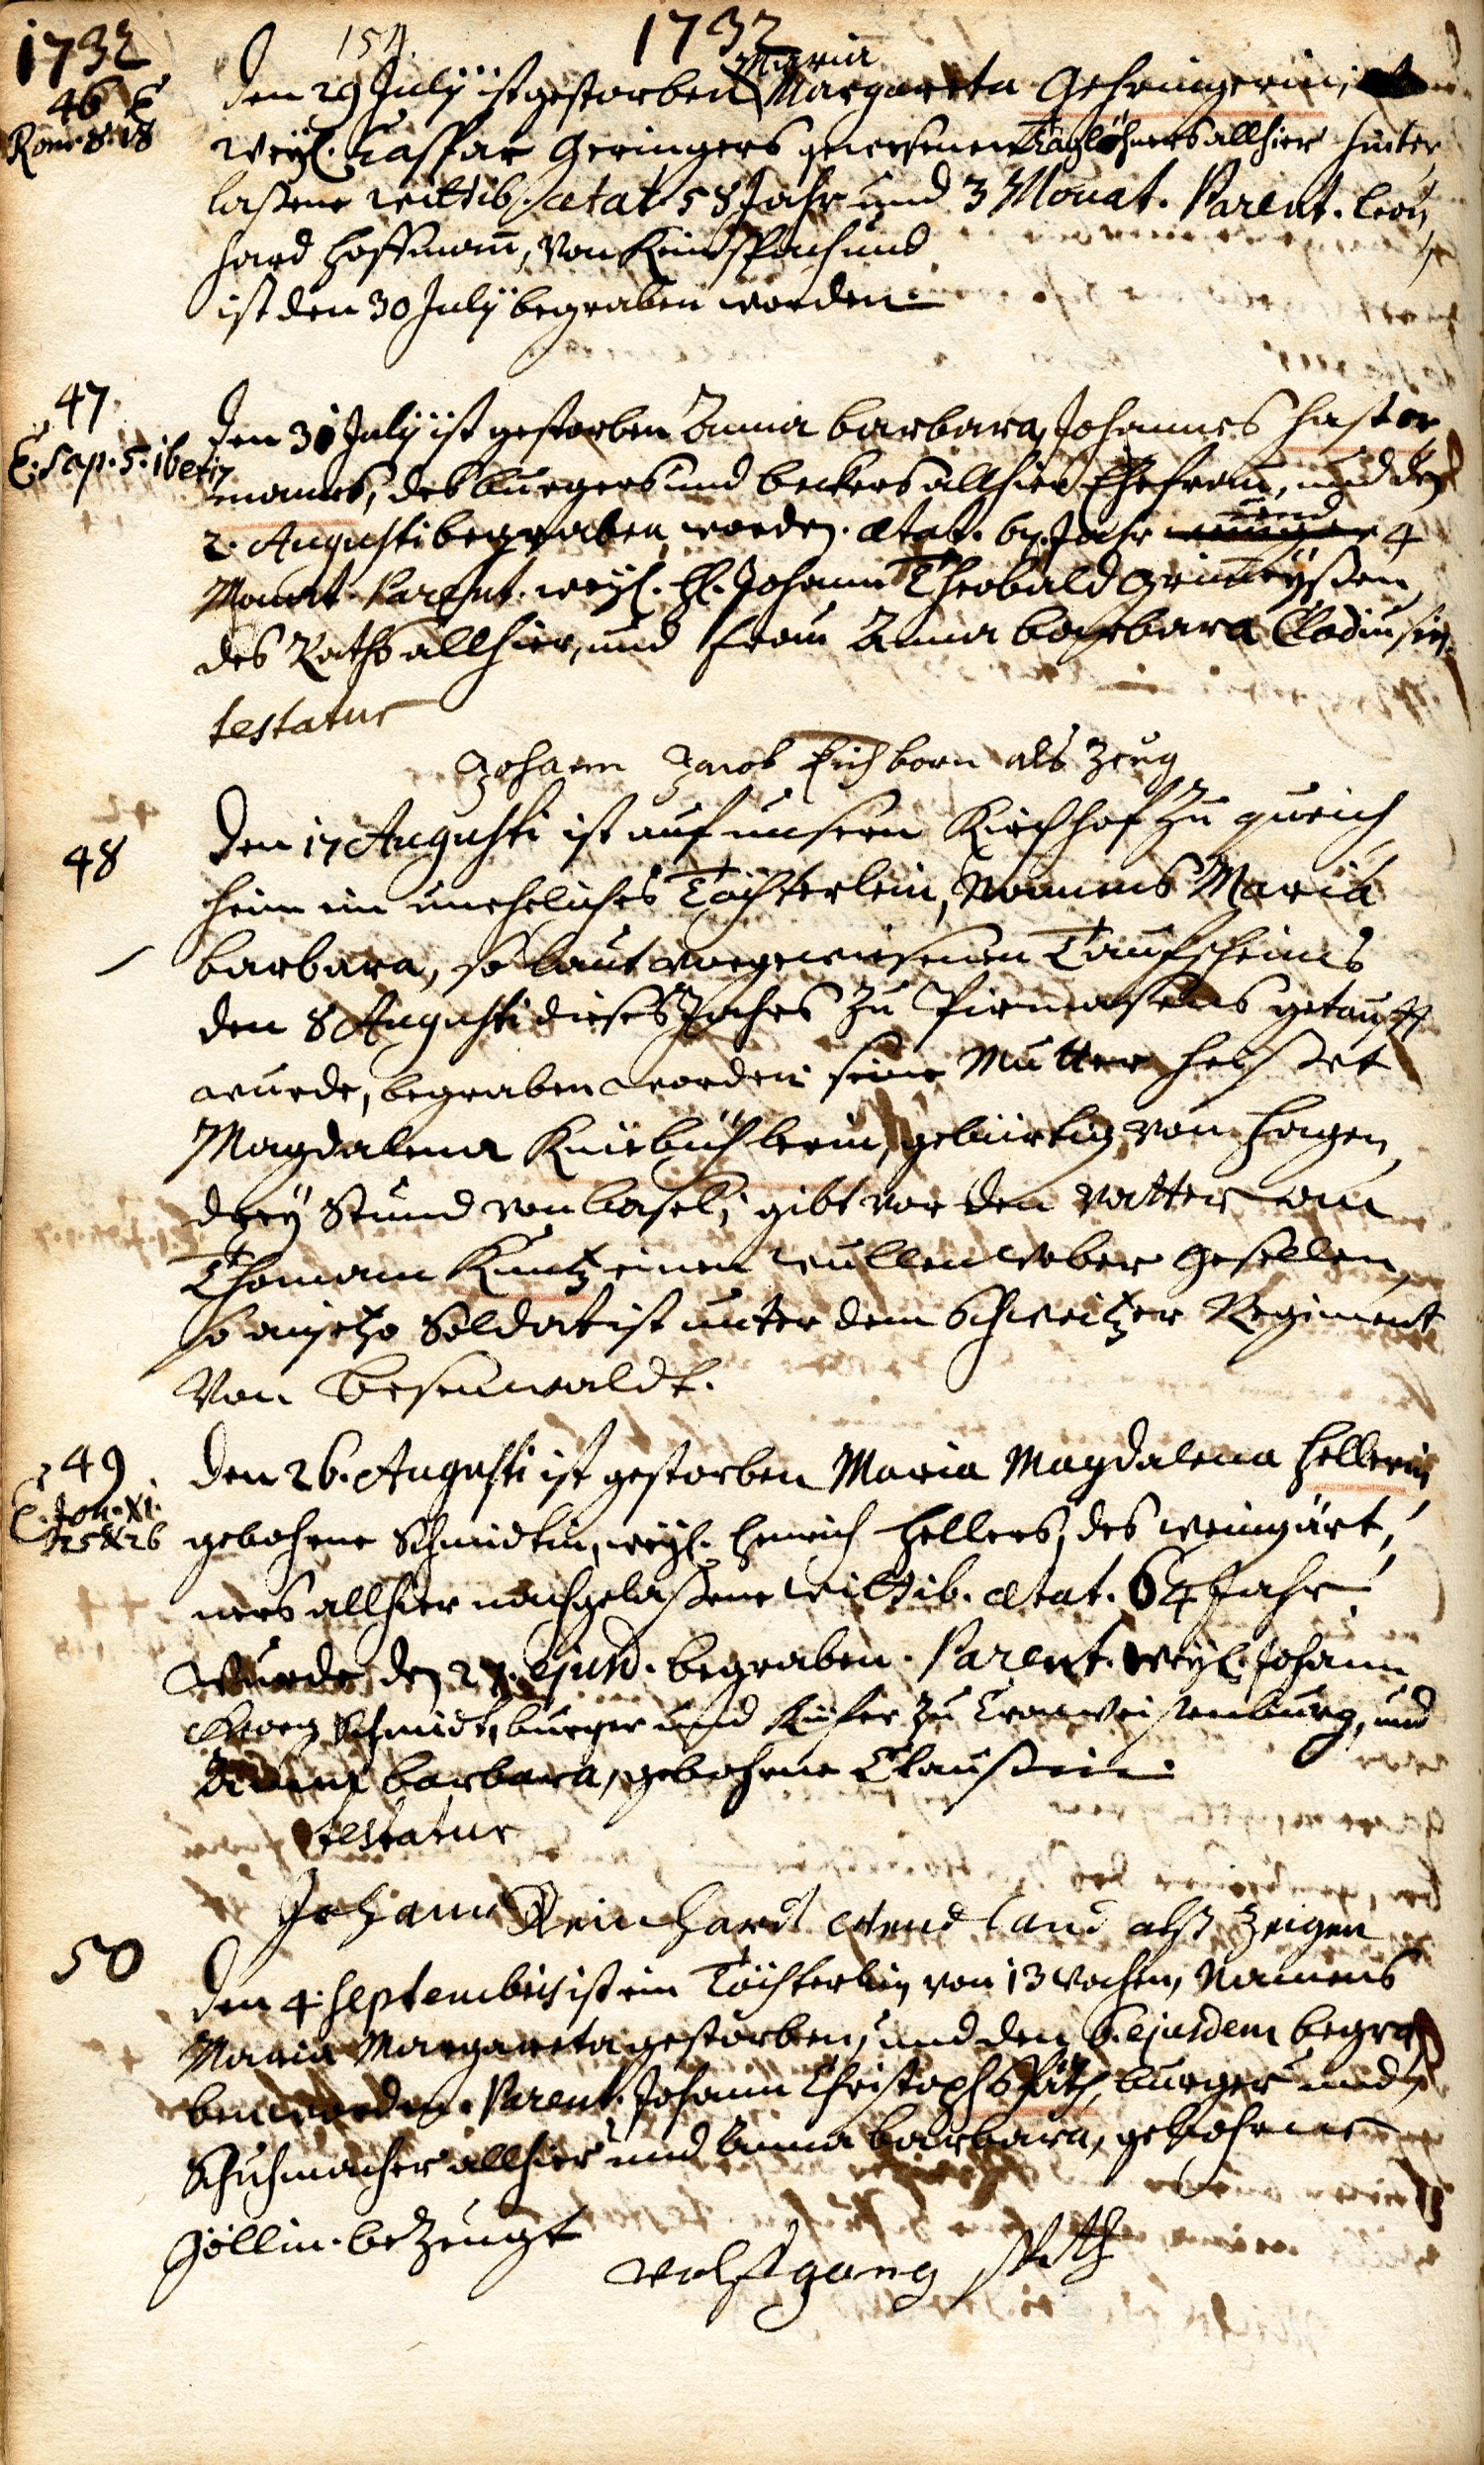 1732
154.
1732
46 E
Rom. 8. 18
Den 29 July ist gestorben Maria Margareta Gehringerin,
weyl. Caspar Geringers gewesenen Taglöhners allhier hinter
laßene Wittib. ætat. 58 Jahr und 3 Monat. Parent. Leon
hard Hoffmann, von und
ist den 30 July begraben worden.
47
E. Sap. 5. 16 et 17
Den 31 July ist gestorben Anna Barbara, Johannes Haster
manns, des burgers und beckers allhier Ehefrau, und den
2. Augusti begraben worden. ætat. 67. Jahr und 4
Monat. Parent. weyl. H. Johann Theobald
des Raths allhier, und frau Anna Barbara
testatur
Johann Jacob Eichborn als Zeug
48
Den 17 Augusti ist auf unserm Kirchhof zu Queich
heim ein uneheliches Töchterlein, Namens Maria
Barbara, so laut vorgewiesenen Taufscheins
den 8 Augusti dieses Jahrs zu Pirmasens getaufft
wurde, begraben worden. seine Mutter heisset
Magdalena Kniebüchlerin, gebürtig von Hagen,
drey Stund von Basel; gibt vor den vatter an
Thomam Kuntz einen wullenweber gesellen,
so anjetzo Soldat ist unter dem Schweitzer Regiment
von Besenwaldt.
49
E. Joh. XI.
25 & 26
Den 26. Augusti ist gestorben Maria Magdalena Hellerin
gebohrne Schmidtin, weyl. Henrich Hellers, des weingärt
ners allhier nachgelaßene Wittib. ætat. 64 Jahr.
Wurde den 27. ejusd. begraben. Parent. weyl. Johann
Georg Schmidt, burger und Küfer zu Cronweissenburg, und
Anna Barbara, gebohrne Claussin.
testatur
Johann Reinhardt Wendland alß Zeigen
50
Den 4. Septembris ist ein Töchterlein von 13 Wochen, Namens
Maria Margareta gestorben, und den 6. ejusdem begra
ben worden. Parent. Johann Christoph Späth, burger und
Schuhmacher allhier und Anna Barbara, gebohrne
Göllin. bezeugt
Wolfgang Späth